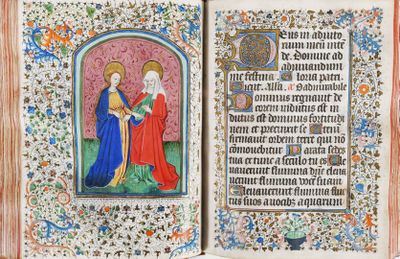 Deus in adiuto
rium meū inte
de. Domine ad
adiuuandum
me festina. Gloria patri.
Sicut. Alla. añ admirabile
Dominus regnauit de
corem indutus est in
dutus est dominus fortitudi
nem et precinxit se Eteni
firmauit orbem terre qui nō
cōmouebitur Parata sedes
tua ex tunc a seculo tu es Ele
uauerunt flumina dñe eleua
uerunt flumina uocē suam
Eleuauerunt flumina fluc
tus suos a uocib3 aquarum